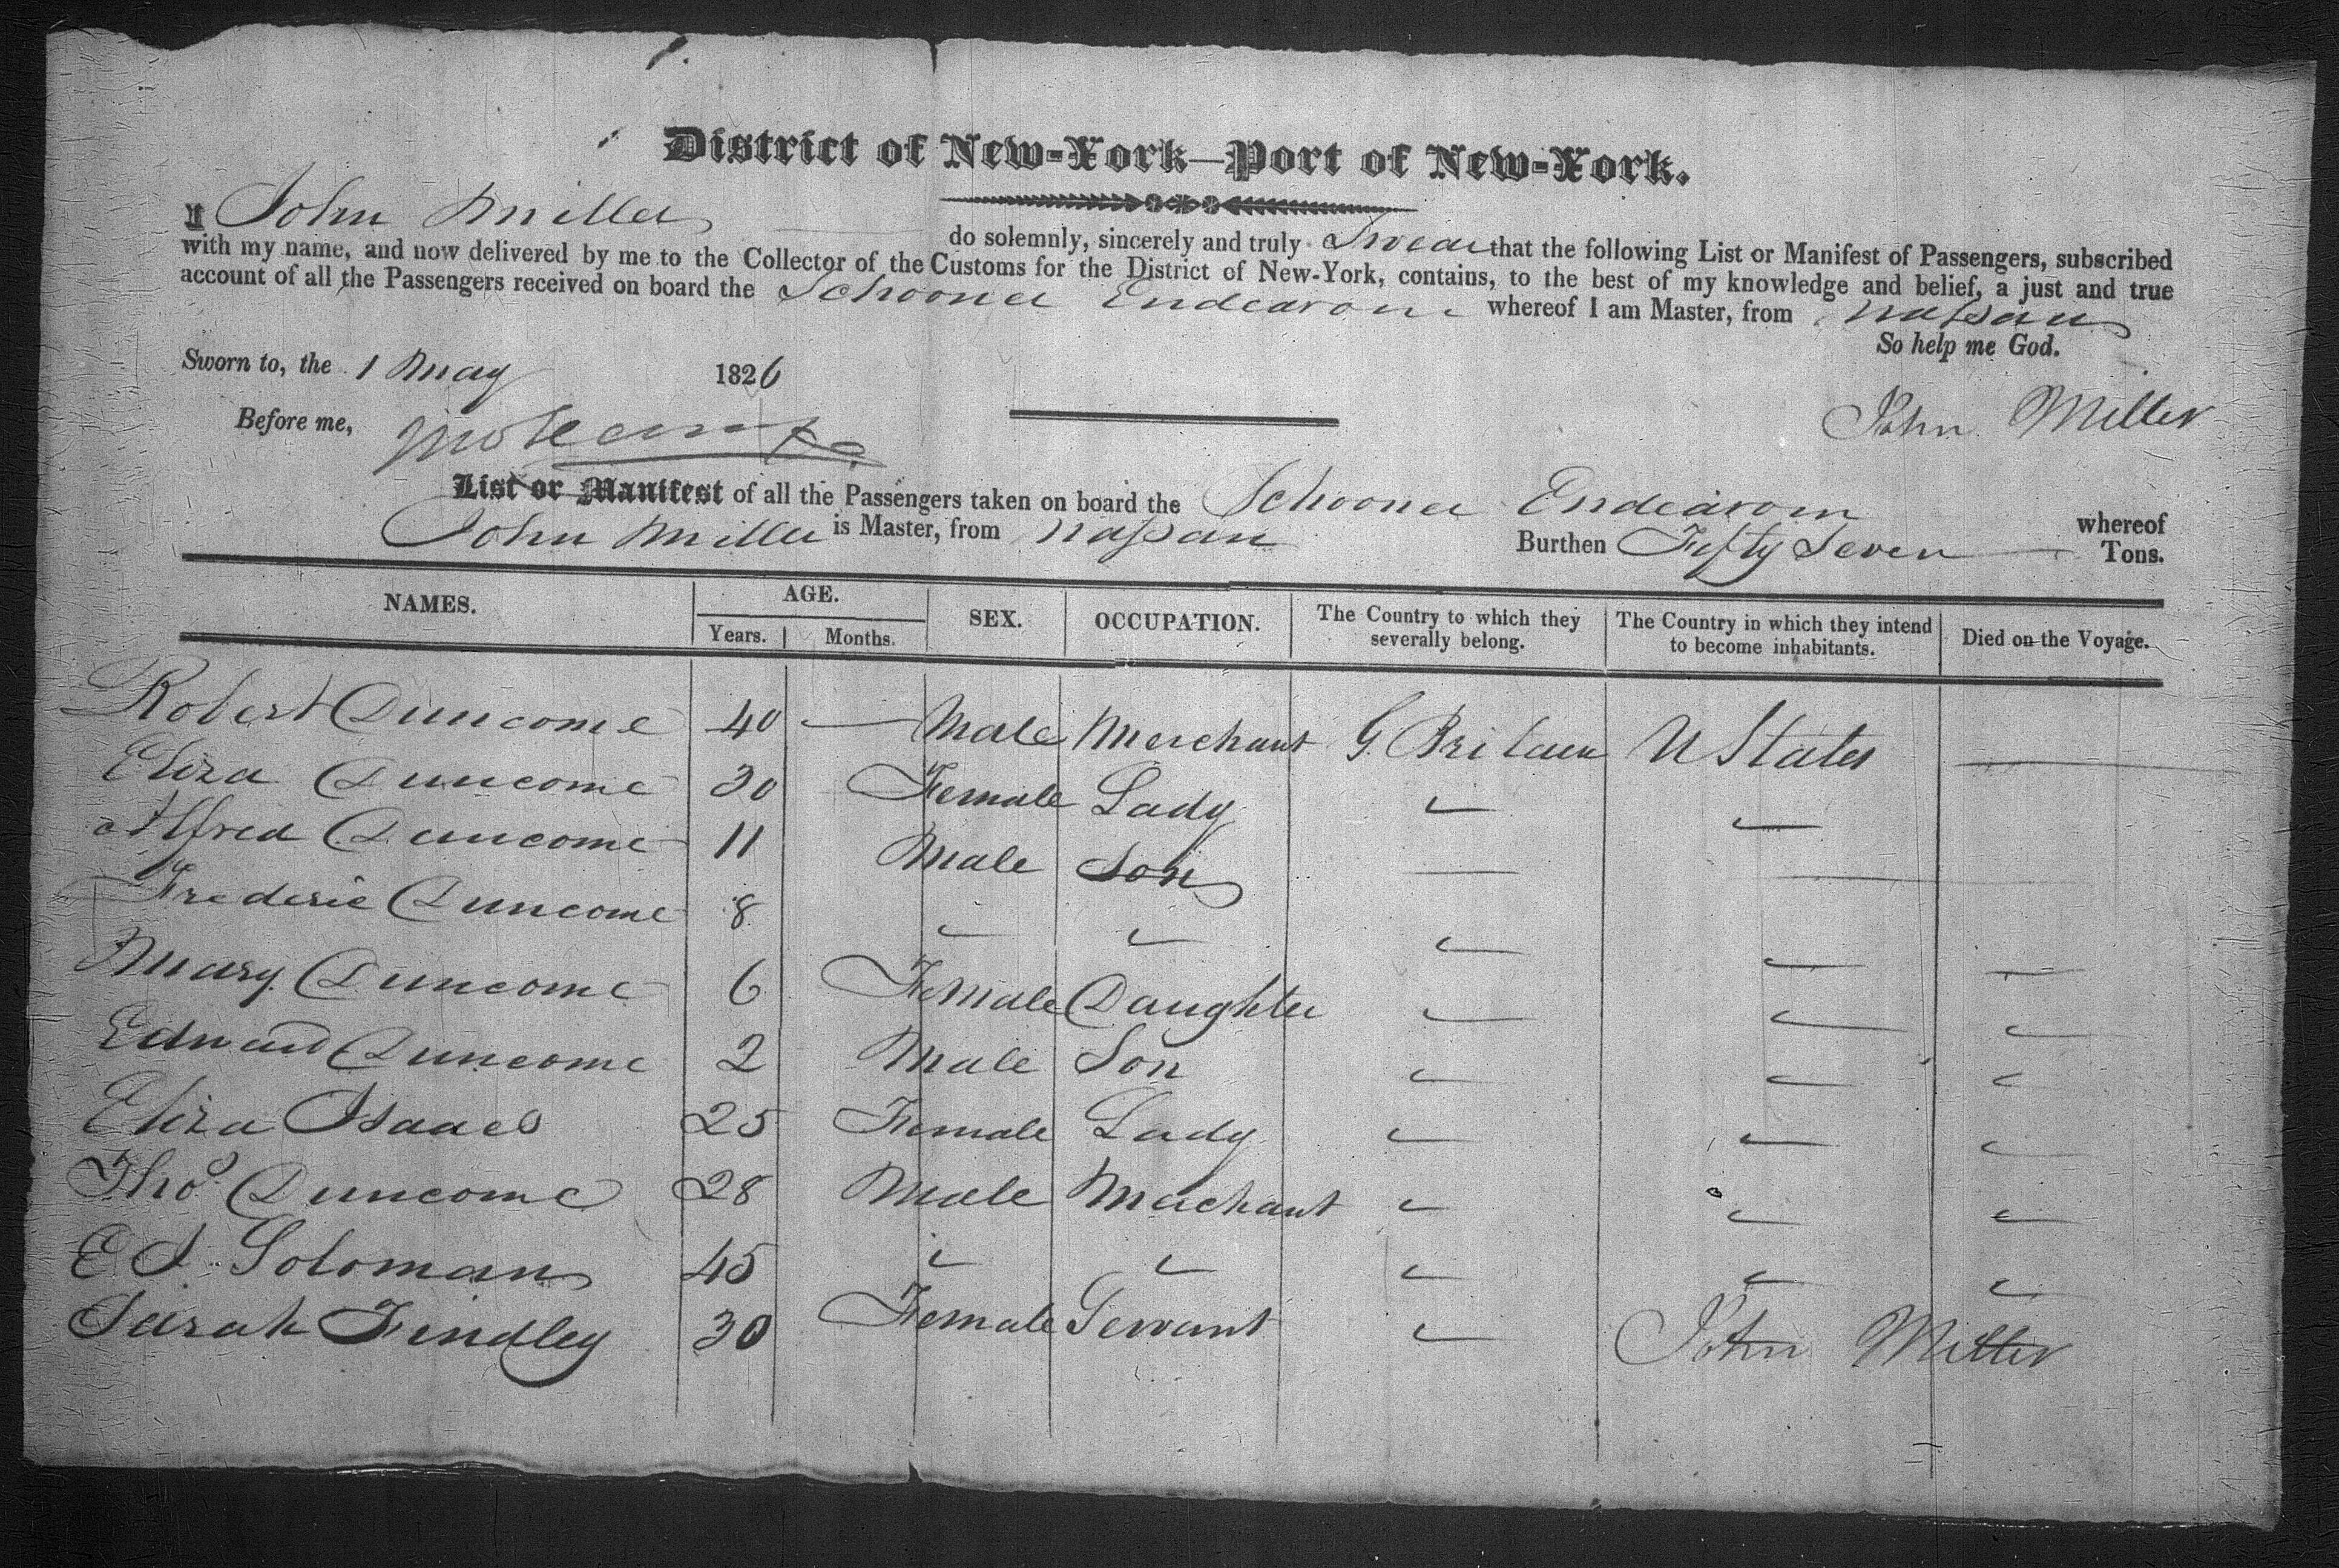 District of New-York—Port of New-York.
I John Miller do solemnly, sincerely and truly Swear that the following List or Manifest of Passengers, subscribed
with my name, and now delivered by me to the Collector of the Customs for the District of New-York, contains, to the best of my knowledge and belief, a just and true
account of all the Passengers received on board the Schooner Endeavour whereof I am Master, from Nassau
So help me God.
Sworn to, the 1 May 1826
John Miller
Before me,
List or Manifest of all the Passengers taken on board the Schooner Endeavour whereof
John Miller is Master, from Nassau Burthen Fifty Seven Tons.
NAMES. AGE. SEX. OCCUPATION. The Country to which they severally belong. The Country in which they intend to become inhabitants. Died on the Voyage.
Years. Months.
Robert Duncome 40 Male Merchant G. Britain U States
Eliza Duncome 30 Female Lady
Alfred Duncome 11 Male Son
Frederic Duncome 8
Mary Duncome 6 Female Daughter
Edward Duncome 2 Male Son
Eliza Isaacs 25 Female Lady
Thos Duncome 28 Male Merchant
E S Soloman 45
Sarah Findley 30 Female Servant
John Miller